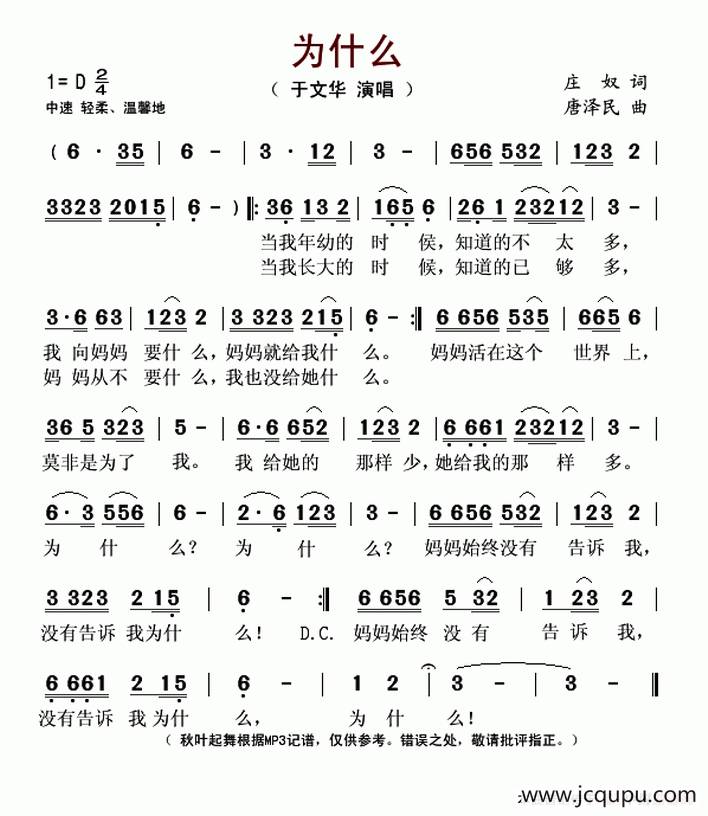 为什么
1= D 2/4
（ 于文华 演唱 ）
庄 奴 词
中速 轻柔、温馨地
唐泽民 曲
( 6 · 35 | 6 - | 3 · 12 | 3 - | 656 532 | 123 2 |
3323 2015 | 6 - ) ‖: 36 132 | 165 6 | 26 1 23212 | 3 - |
当我年幼的 时 侯，知道的不 太 多，
当我长大的 时 候，知道的已 够 多，
3·6 63 | 123 2 | 3 323 215 | 6 - :‖ 6 656 535 | 665 6 |
我 向妈妈 要什 么，妈妈就给我什 么。 妈妈活在这个 世界 上，
妈 妈从不 要什 么，我也没给她什 么。
36 5 323 | 5 - | 6·6 652 | 123 2 | 6 661 23212 | 3 - |
莫非是为了 我。 我 给她的 那样 少，她给我的那 样 多。
6· 3 556 | 6 - | 2· 6 123 | 3 - | 6 656 532 | 123 2 |
为 什 么？ 为 什 么？ 妈妈始终没有 告诉 我，
3 323 2 15 | 6 - :‖ 6 656 5 32 | 1 23 2 |
没有告诉 我为什 么！ D.C. 妈妈始终 没 有 告 诉 我，
6 661 2 15 | 6 - | 1 2 | 3 - | 3 - |
没有告诉 我 为什 么， 为 什 么！
（ 秋叶起舞根据MP3记谱，仅供参考。错误之处，敬请批评指正。）
www.jcqupu.com